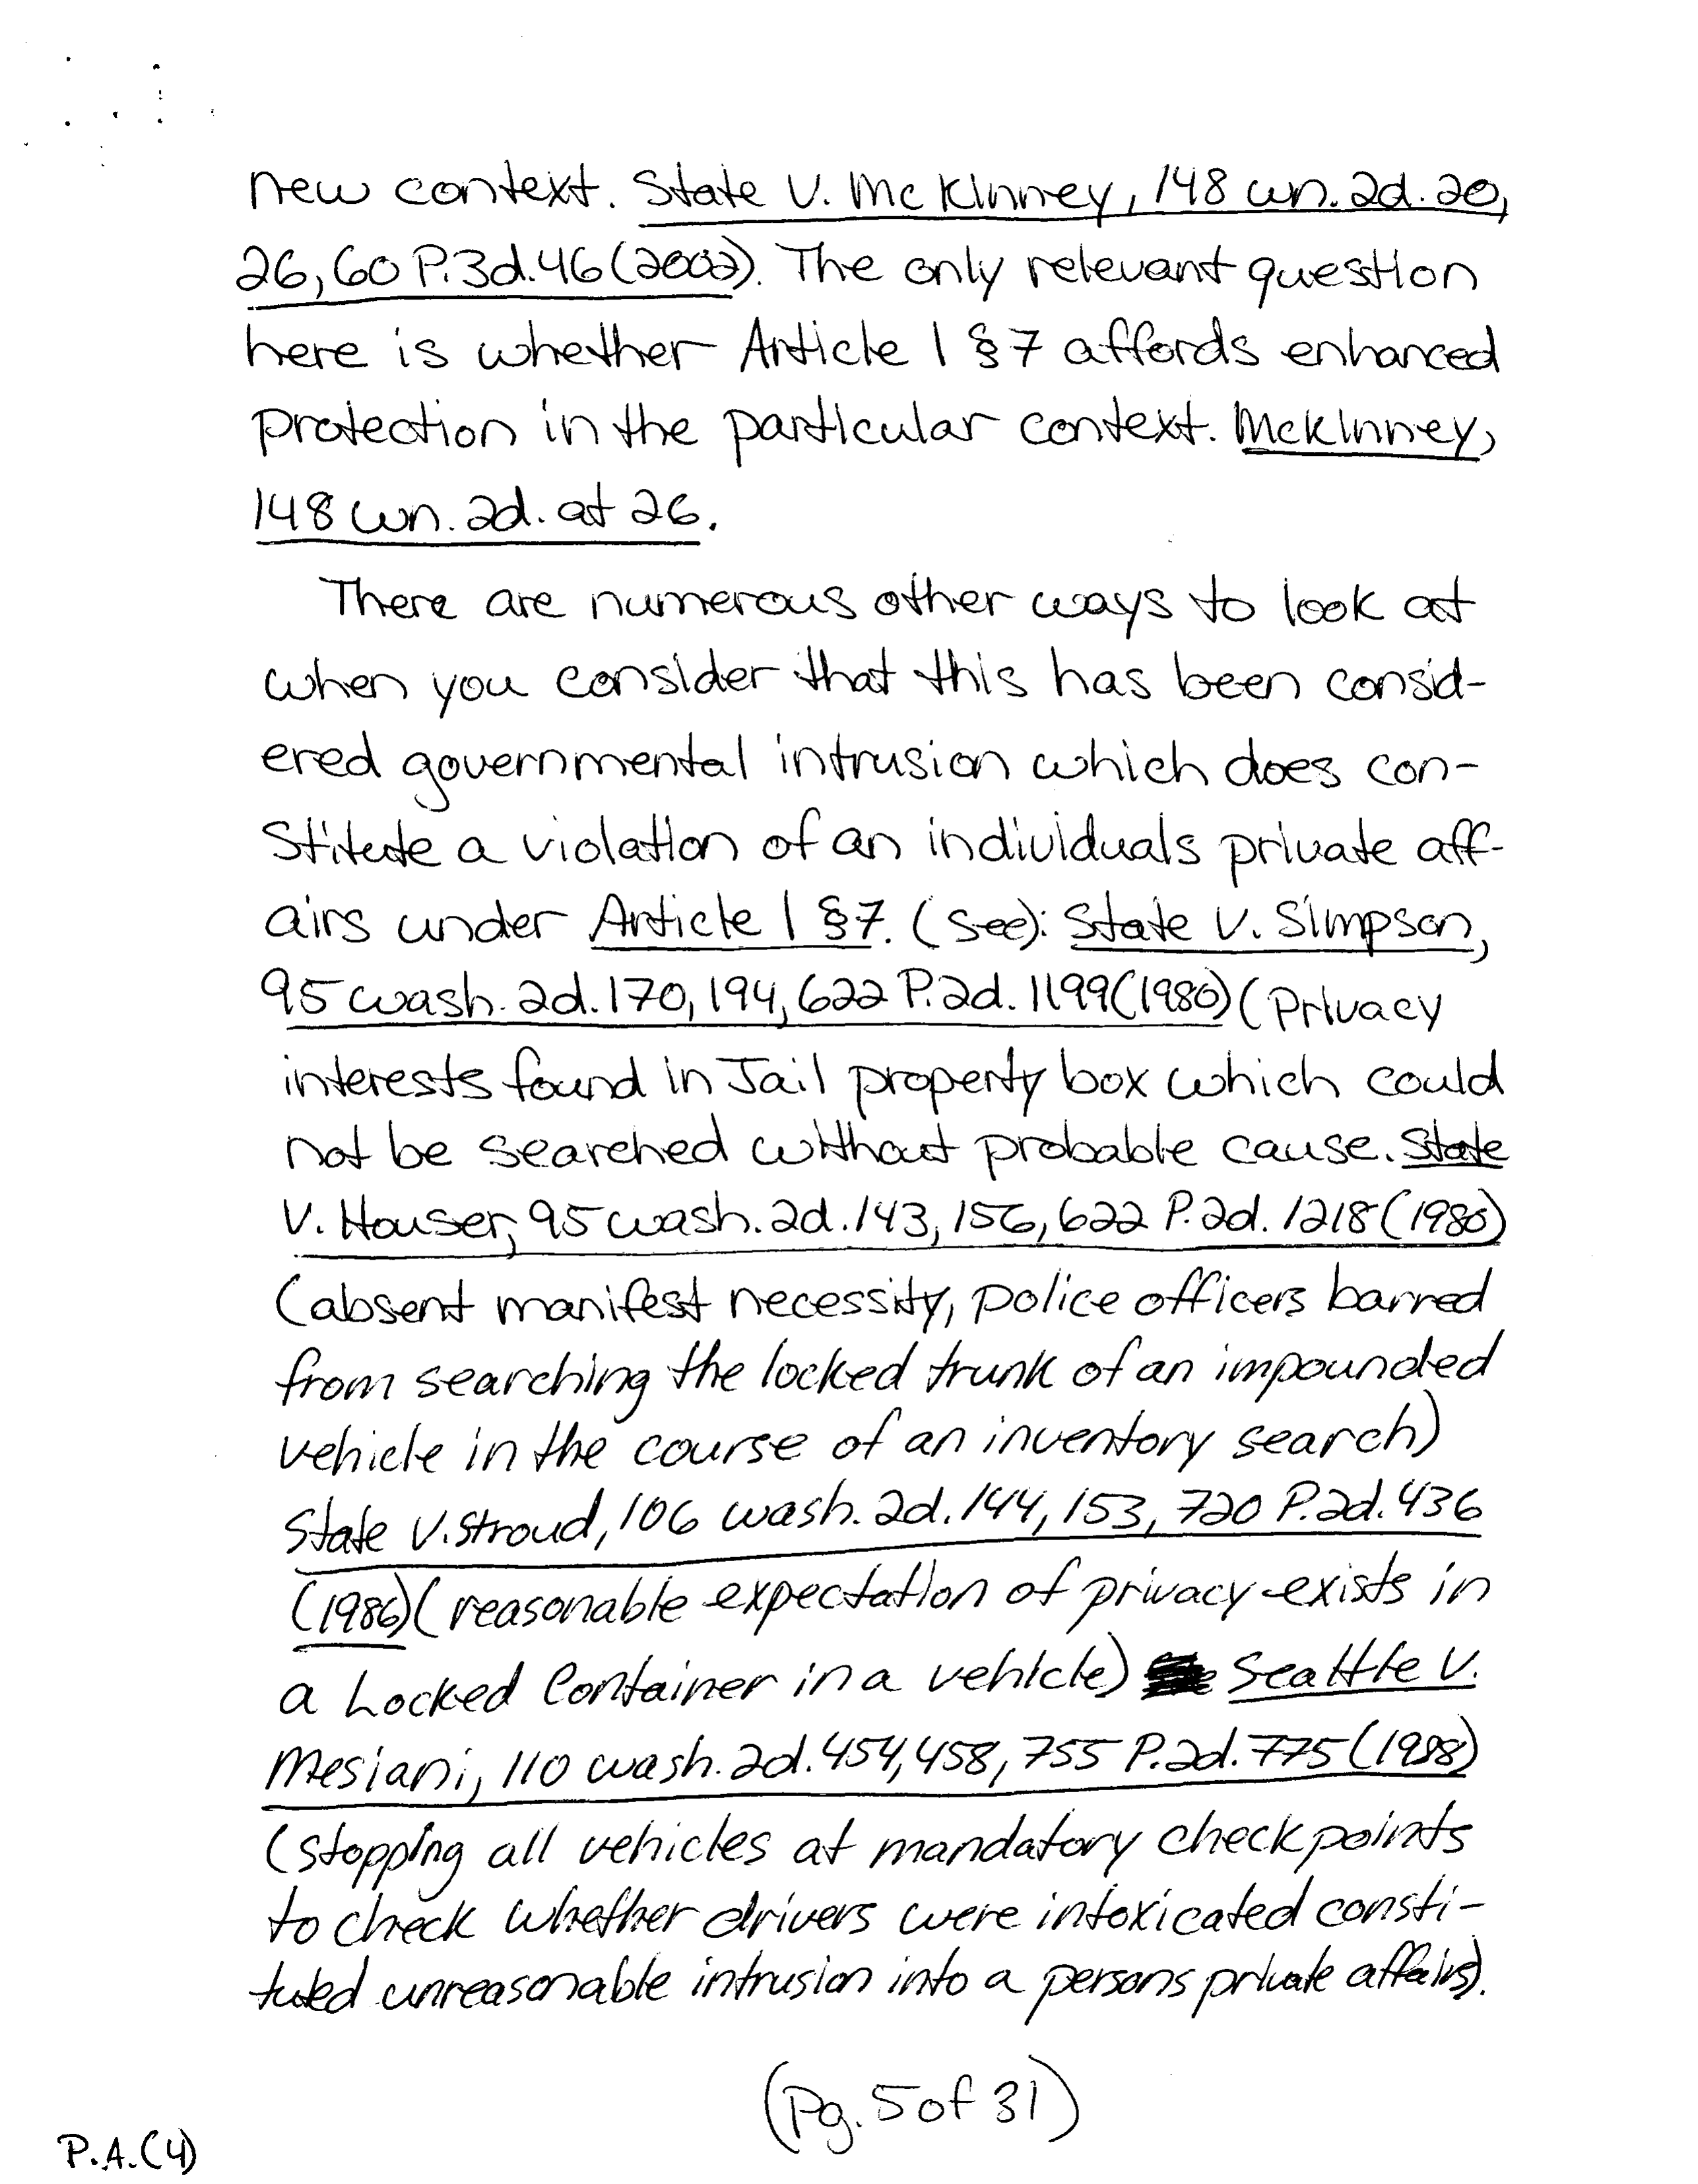 new context. State v. McKinney, 148 wn. 2d. 20,
26, 60 P.3d. 46 (2002). The only relevant question
here is whether Article 1 §7 affords enhanced
protection in the particular context. McKinney,
148 wn. 2d. at 26.
There are numerous other ways to look at
when you consider that this has been consid-
ered governmental intrusion which does con-
stitute a violation of an individuals private aff-
airs under Article 1 §7. (See): State v. Simpson,
95 wash. 2d. 170, 194, 622 P. 2d. 1199 (1980) (Privacy
interests found in Jail property box which could
not be searched without probable cause. State
v. Houser, 95 wash. 2d. 143, 156, 622 P. 2d. 1218 (1980)
(absent manifest necessity, police officers barred
from searching the locked trunk of an impounded
vehicle in the course of an inventory search)
State v. Stroud, 106 wash. 2d. 144, 153, 720 P. 2d. 436
(1986) (reasonable expectation of privacy exists in
a Locked Container in a vehicle) Seattle v.
Mesiani, 110 wash. 2d. 454, 458, 755 P. 2d. 775 (1988)
(stopping all vehicles at mandatory checkpoints
to check whether drivers were intoxicated consti-
tuted unreasonable intrusion into a persons private affairs).
(Pg. 5 of 31)
P.A.(4)